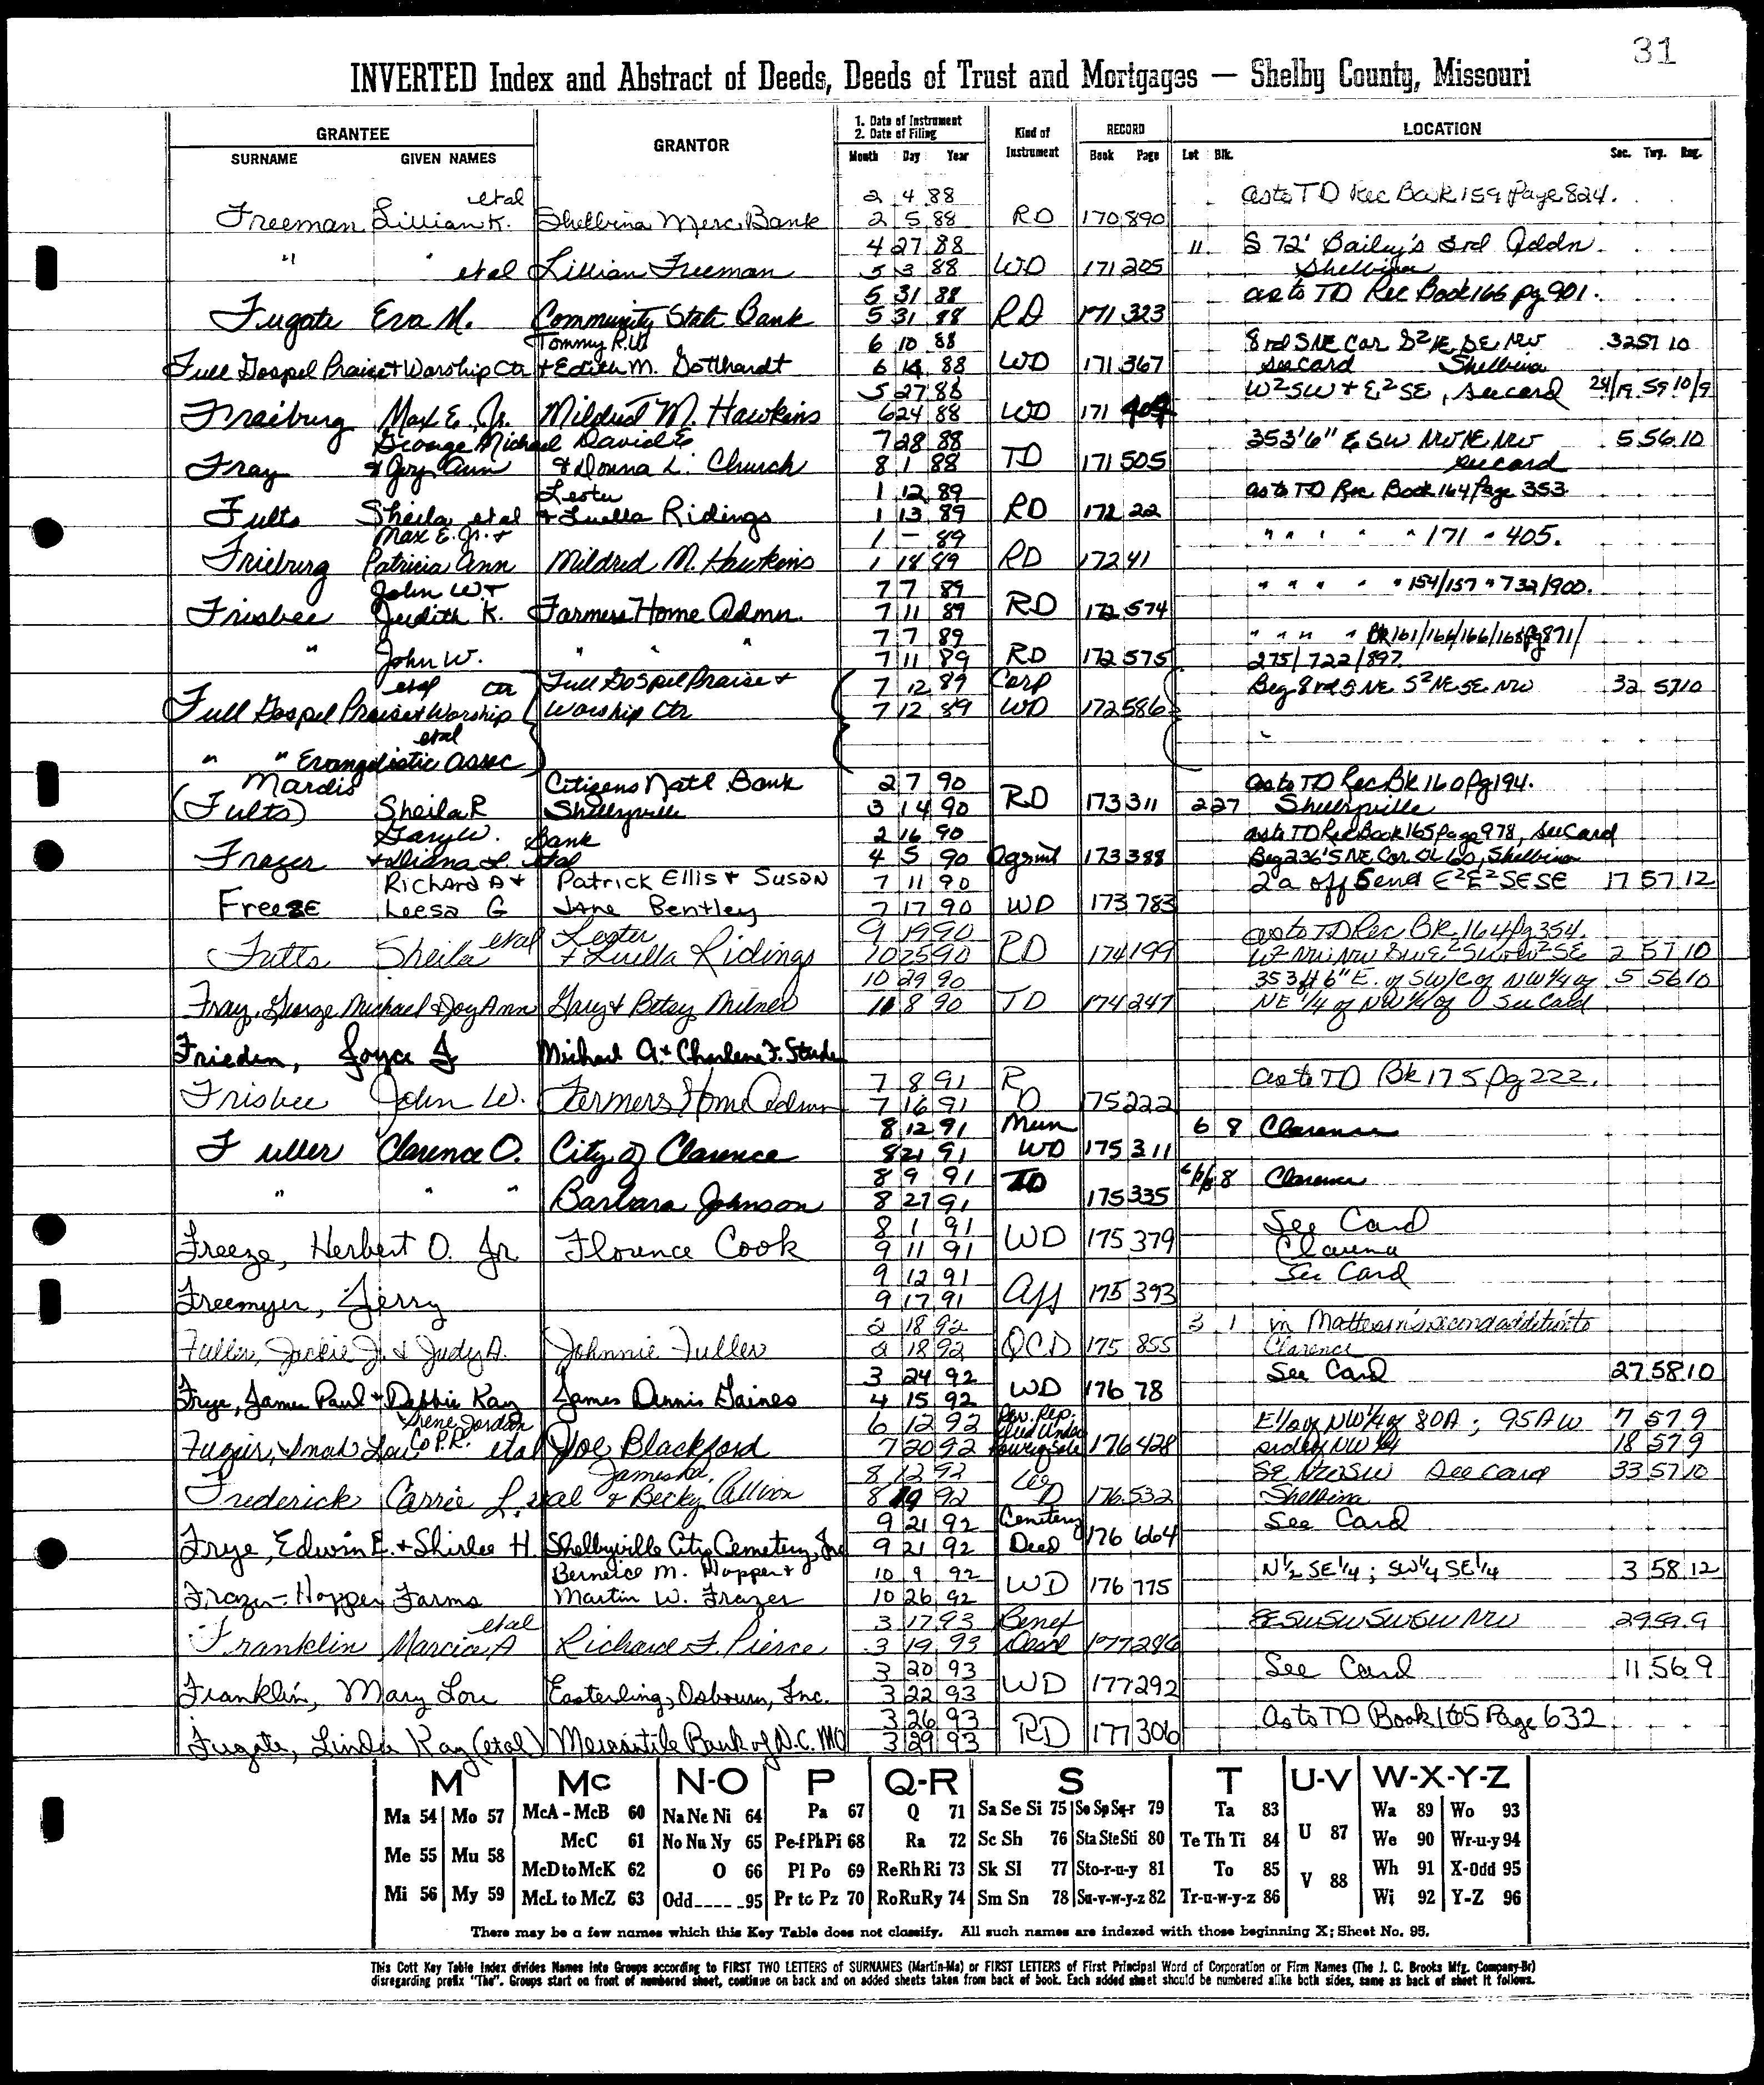 31
INVERTED Index and Abstract of Deeds, Deeds of Trust and Mortgages — Shelby County, Missouri
GRANTEE GRANTOR 1. Date of Instrument 2. Date of Filing Kind of Instrument RECORD LOCATION
SURNAME GIVEN NAMES Month Day Year Book Page Lot Blk. Sec. Twp. Rng.
etal 2 4 88 as to TD Rec Book 159 Page 824.
Freeman Lillian K. Shelbina Merc. Bank 2 5 88 RD 170 890
4 27 88 11 S 72' Bailey's 3rd Addn
" " etal Lillian Freeman 5 3 88 WD 171 205 Shelbina
5 31 88 as to TD Rec Book 166 pg 901.
Fugate Eva M. Community State Bank 5 31 88 RD 171 323
Tommy R. 6 10 88 8rd S NE Cor S2 NE SE NW 32 57 10
Full Gospel Praise + Worship Ctr + Edith M. Gotthardt 6 14 88 WD 171 367 see card Shelbina
5 27 88 W2SW + E2SE, see card 24/19 59 10/9
Fraiburg Max E. Jr. Mildred M. Hawkins 6 24 88 WD 171 404
George Michael David E 7 28 88 353'6" E SW NW NE NW 5 56 10
Fray + Joy Ann + Donna L. Church 8 1 88 TD 171 505 see card
Lester 1 12 89 as to TD Rec Book 164 Page 353
Fults Sheila etal + Luella Ridings 1 13 89 RD 172 22
Max E. Jr. + 1 – 89 " " " " " 171 " 405.
Frieburg Patricia Ann Mildred M. Hawkins 1 18 89 RD 172 41
John W + 7 7 89 " " " " " 154/157 " 732/900.
Frisbee Judith K. Farmers Home Admn. 7 11 89 RD 172 574
7 7 89 " " " " BK 161/166/166/168 pg 871/
" John W. " " " 7 11 89 RD 172 575 275/722/897
etal Ctr Full Gospel Praise + 7 12 89 Corp Beg 8rd S NE S2 NE SE NW 32 57 10
Full Gospel Praise + Worship Worship Ctr 7 12 89 WD 172 586
etal
" " Evangelistic Assoc
Mardis Citizens Natl Bank 2 7 90 as to TD Rec Bk 160 pg 194.
(Fults) Sheila R Shelbyville 3 14 90 RD 173 311 2 27 Shelbyville
Gary W. Bank 2 16 90 as to TD Rec Book 165 page 978, See Card
Frazer + Diana L. etal 4 5 90 Agrmt 173 388 Beg 236' S NE Cor OL 60, Shelbina
Richard A + Patrick Ellis + Susan 7 11 90 2a off S end E2E2SESE 17 57 12
Freese Leesa G Jane Bentley 7 17 90 WD 173 783
etal Lester 9 19 90 as to TD Rec BK 164 pg 354.
Fults Sheila + Luella Ridings 10 25 90 RD 174 199 2 57 10
10 29 90 353 ft 6" E. of SW/C of NW 1/4 of 5 56 10
Fray, George Michael & Joy Ann Gary + Betsy Milner 11 8 90 TD 174 247 NE 1/4 of NW 1/4 of See Card
Frieden, Joyce J Michael A. + Charlene F. Stude
7 8 91 R as to TD Bk 175 pg 222.
Frisbee John W. Farmers Home Admn 7 16 91 D 175 222
8 12 91 Mun 6 8 Clarence
Fuller Clarence O. City of Clarence 8 21 91 WD 175 311
8 9 91 TD 8 Clarence
" " " Barbara Johnson 8 27 91 175 335
8 1 91 See Card
Freeze, Herbert O. Jr Florence Cook 9 11 91 WD 175 379 Clarence
9 12 91 See Card
Freemyer, Jerry 9 17 91 Aff 175 393
2 18 92 3 1 in Matteson's second addition to
Fuller, Jackie J. & Judy A. Johnnie Fuller 2 18 92 QCD 175 855 Clarence
3 24 92 See Card 27 58 10
Frye, James Paul + Debbie Kay James Dennis Gaines 4 15 92 WD 176 78
Irene Jordan 6 12 92 Per. Rep. E 1/2 of NW 1/4 of 80A; 95A W 7 57 9
Co P.R. etal Joe Blackford 7 20 92 Deed Under Power of Sale 176 428 side of NW 1/4 18 57 9
8 12 92 SE NW SW See Card 33 57 10
Frederick Carrie L. etal + Becky Allison 8 19 92 WD 176 532 Shelbina
9 21 92 Cemetery See Card
Frye, Edwin E. + Shirlee H. Shelbyville City Cemetery, Inc 9 21 92 Deed 176 664
Berneice M. Hopper + 10 9 92 N 1/2 SE 1/4; SW 1/4 SE 1/4 3 58 12
Frazer-Hopper Farms Martin W. Frazer 10 26 92 WD 176 775
etal 3 17 93 Benef SE SW SW SW SW NW 29 59 9
Franklin Marcia A Richard F. Pierce 3 19 93 Deed 177 286
3 20 93 See Card 11 56 9
Franklin, Mary Lou Easterling, Osbourn, Inc. 3 22 93 WD 177 292
3 26 93 As to TD Book 165 Page 632
Fugate, Linda Kay (etal) Mercantile Bank of N.C. MO 3 29 93 RD 177 306
M Mc N-O P Q-R S T U-V W-X-Y-Z
Ma 54 Mo 57 McA - McB 60 Na Ne Ni 64 Pa 67 Q 71 Sa Se Si 75 So Sp Sq-r 79 Ta 83 U 87 Wa 89 Wo 93
Me 55 Mu 58 McC 61 No Nu Ny 65 Pe-f Ph Pi 68 Ra 72 Sc Sh 76 Sta Ste Sti 80 Te Th Ti 84 We 90 Wr-u-y 94
McD to McK 62 O 66 Pl Po 69 Re Rh Ri 73 Sk Sl 77 Sto-r-u-y 81 To 85 V 88 Wh 91 X-Odd 95
Mi 56 My 59 McL to McZ 63 Odd 95 Pr to Pz 70 Ro Ru Ry 74 Sm Sn 78 Su-v-w-y-z 82 Tr-u-w-y-z 86 Wi 92 Y-Z 96
There may be a few names which this Key Table does not classify. All such names are indexed with those beginning X; Sheet No. 95.
This Cott Key Table Index divides Names into Groups according to FIRST TWO LETTERS of SURNAMES (Martin-Ma) or FIRST LETTERS of First Principal Word of Corporation or Firm Names (The J. C. Brooks Mfg. Company-Br)
disregarding prefix "The". Groups start on front of numbered sheet, continue on back and on added sheets taken from back of book. Each added sheet should be numbered alike both sides, same as back of sheet it follows.